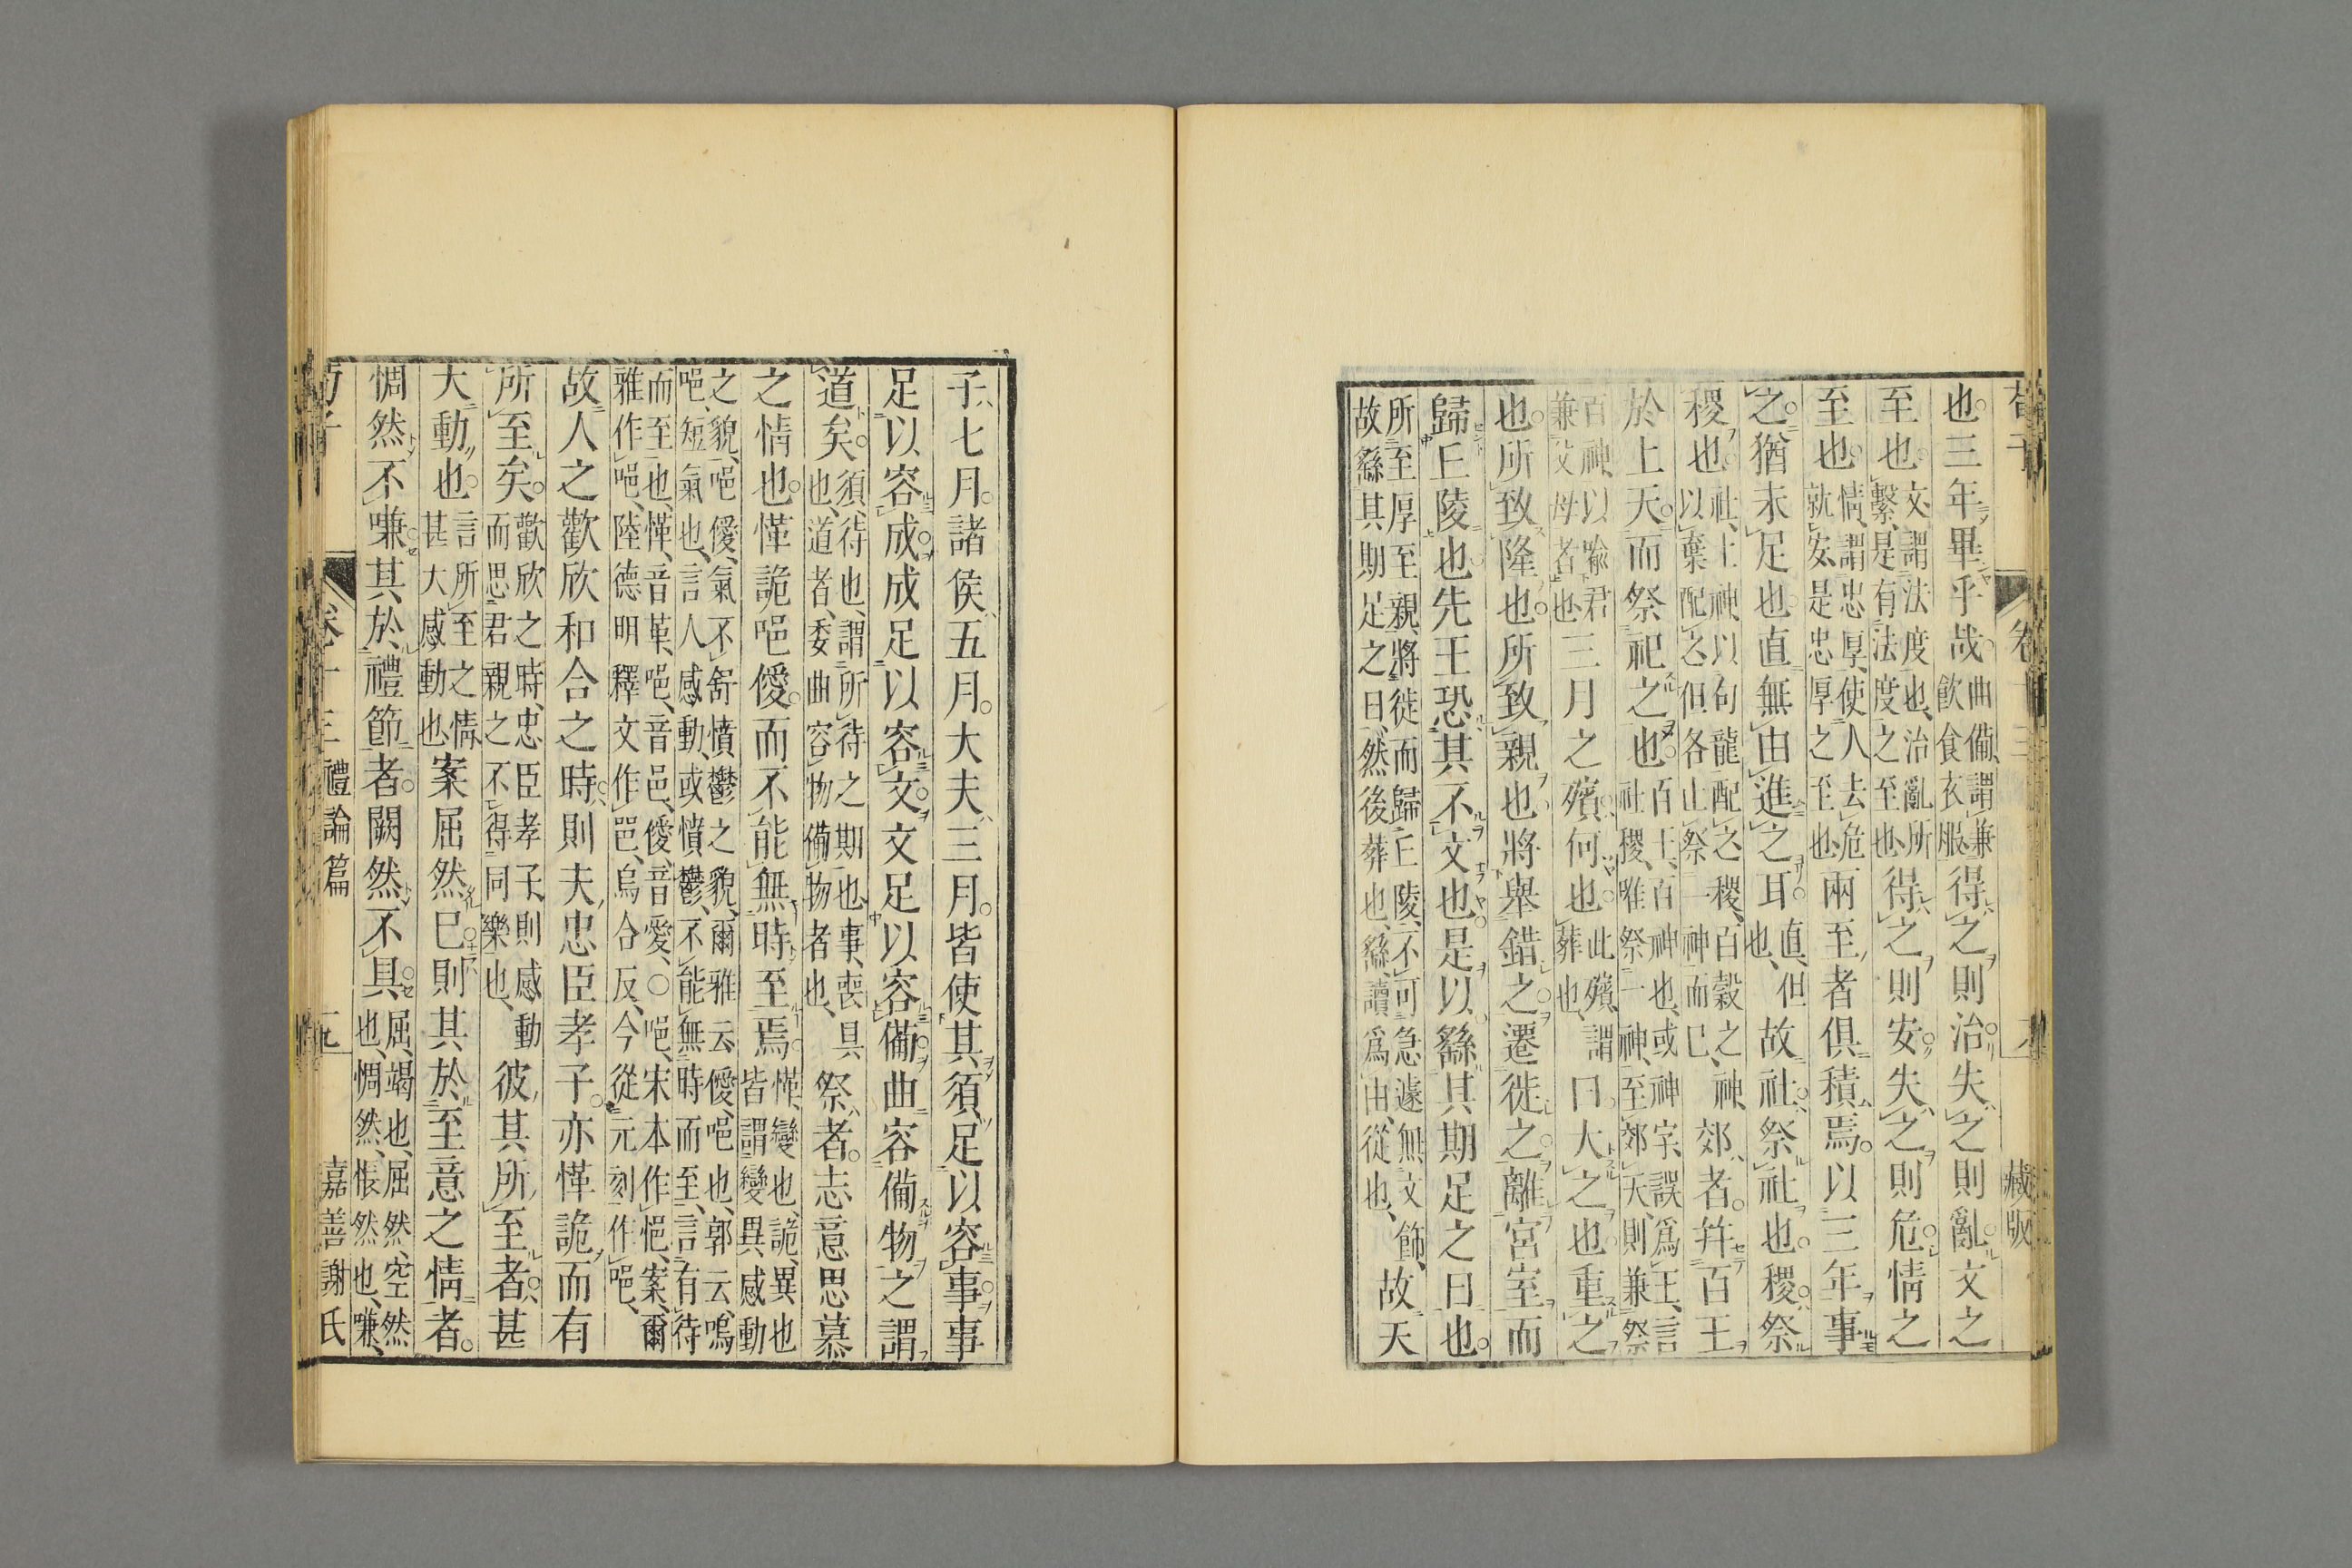 荀子 卷十三 藏版
也三年畢乎哉曲備謂兼飲食衣服得之則治失之則亂文之
至也文謂法度也治亂所繫是有法度之至也得之則安失之則危情之
至也情謂忠厚使人去危就安是忠厚之至也兩至者俱積焉以三年事
之猶未足也直無由進之耳直但也故社祭社也稷祭
稷也社土神以句龍配之稷百穀之神以棄配之但各止祭一神而已郊者幷百王
於上天而祭祀之也百王百神也或神字誤爲王言社稷唯祭一神至郊天則兼祭
百神以喩君兼父母者也三月之殯何也此殯謂葬也曰大之也重之
也所致隆也所致親也將舉錯之遷徙之離宮室而
歸丘陵也先王恐其不文也是以繇其期足之日也
所至厚至親將徙而歸丘陵不可急遽無文飾故繇其期足之日然後葬也繇讀爲由從也故天
子七月諸侯五月大夫三月皆使其須足以容事事
足以容成成足以容文文足以容備曲容備物之謂
道矣須待也謂所待之期也事喪具也道者委曲容物備物者也祭者志意思慕
之情也愅詭唈僾而不能無時至焉愅變也詭異也皆謂變異感動
之貌唈僾氣不舒憤鬱之貌爾雅云僾唈也郭云嗚唈短氣也言人感動或憤鬱不能無時而至言有待
而至也愅音革唈音邑僾音愛○唈宋本作悒案爾雅作唈陸德明釋文作邑烏合反今從元刻作唈
故人之歡欣和合之時則夫忠臣孝子亦愅詭而有
所至矣歡欣之時忠臣孝子則感動而思君親之不得同樂也彼其所至者甚
大動也言所至之情甚大感動也案屈然已則其於至意之情者
惆然不嗛其於禮節者闕然不具屈竭也屈然空然也惆然悵然也嗛
荀子 卷十三 禮論篇 嘉善謝氏